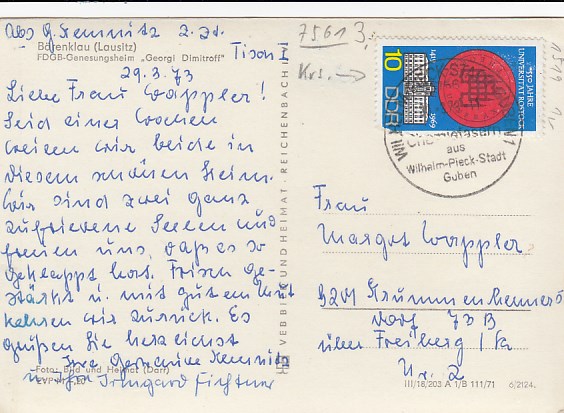 Abs G. Kemnitz z. Zt.
Bärenklau (Lausitz)
FDGB-Genesungsheim „Georgi Dimitroff“
Tisch I
29.3.73
Liebe Frau Wappler!
Seid einer Wochen
weilen wir beide in
diesem schönen Heim.
Wir sind zwei ganz
zufriedene Seelen und
freuen uns, daß es so
geklappt hat. Frisch ge-
stärkt u. mit gutem Mut
kehren wir zurück. Es
grüßen Sie herzlichst
Ihre Kemnitz
u. Ihre Irmgard Fichtner
Foto: Bild und Heimat (Darr)
EVP M 0,20
VEB BILD UND HEIMAT · REICHENBACH I. V.
7561
3
Krs.
10
DDR
550 JAHRE
UNIVERSITÄT ROSTOCK
1419
1969
Chemiefasern
aus
Wilhelm-Pieck-Stadt
Guben
1549
Frau
Margot Wappler
9201 Krummenhenners
dorf 73B
über Freiberg / Sa
Nr. 2
III/18/203 A 1/B 111/71
6/2124.